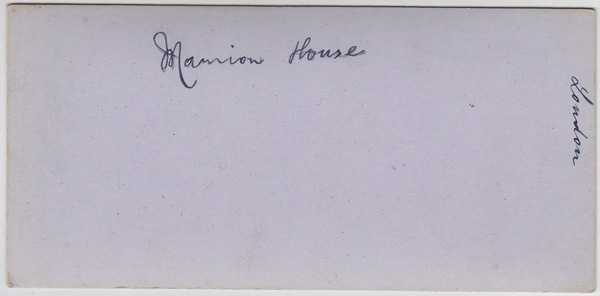 Mansion House
London